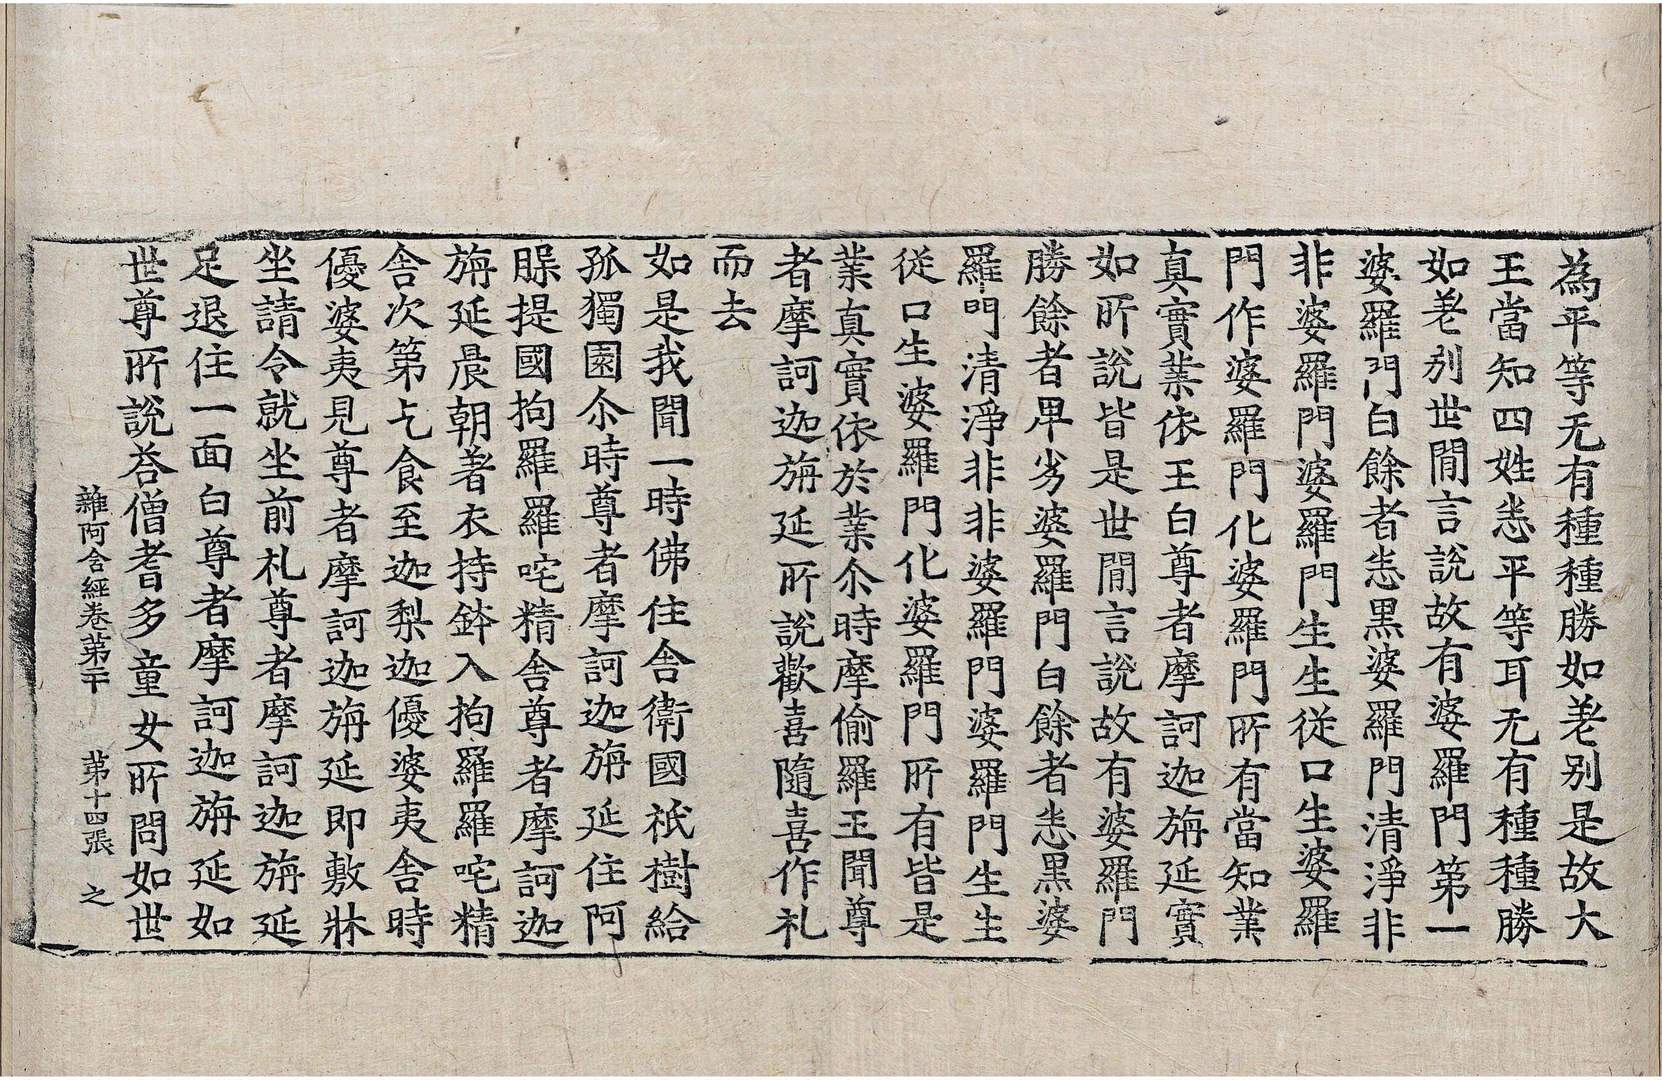 為平等无有種種勝如差别是故大
王當知四姓悉平等耳无有種種勝
如差别世間言說故有婆羅門第一
婆羅門白餘者悉黒婆羅門清淨非
非婆羅門婆羅門生生従口生婆羅
門作婆羅門化婆羅門所有當知業
真實業依王白尊者摩訶迦旃延實
如所說皆是世間言說故有婆羅門
勝餘者卑劣婆羅門白餘者悉黒婆
羅門清淨非非婆羅門婆羅門生生
従口生婆羅門化婆羅門所有皆是
業真實依於業尒時摩偷羅王聞尊
者摩訶迦旃延所說歡喜隨喜作礼
而去
如是我聞一時佛住舎衛國祇樹給
孤獨園尒時尊者摩訶迦旃延住阿
提國拘羅羅咤精舎尊者摩訶迦
旃延晨朝著衣持鉢入拘羅羅咤精
舎次第乞食至迦梨迦優婆夷舎時
優婆夷見尊者摩訶迦旃延即敷牀
坐請令就坐前礼尊者摩訶迦旃延
足退住一面白尊者摩訶迦旃延如
世尊所說荅僧耆多童女所問如世
雜阿含經卷第二十 第十四張 之